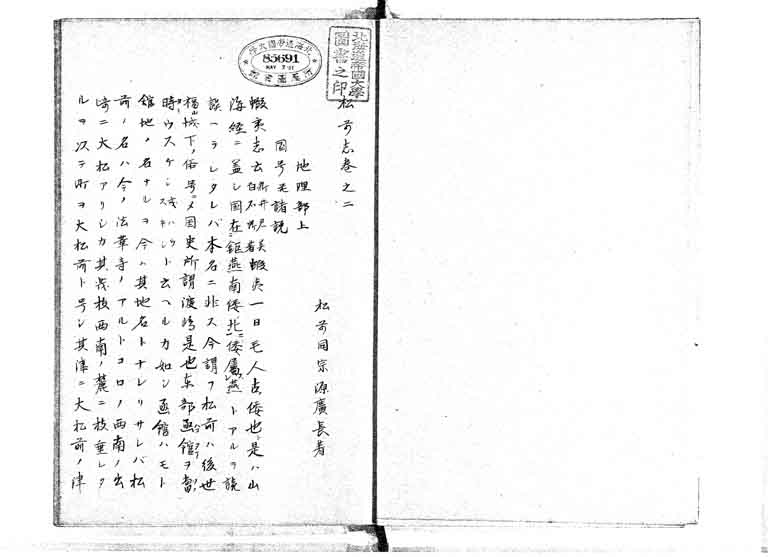 松前志巻之二
松前同宗源廣長著
地理部上
国号并諸説
蝦夷志云 蝦夷一曰毛人古倭也ト是ハ山
海経ニ蓋シ国在鉅燕南倭北倭屬燕トアルヲ説
誤ヘラレタレバ本名ニ非ス今謂フ松前ハ後世
福山城下ノ俗号ニメ国史所謂渡嶋是也東部函館ヲ
時ウスケシ ト云ヘルカ如シ函館ハモト
舘地ノ名ナルヲ今ハ其地名トナレリサレバ松
前ノ名ハ今ノ法華寺ノアルトコロノ西南ノ出
崎ニ大松アリシカ其茂枝西南ノ麓ニ枝垂レタ
ルヲ以テ町ヲ大松前ト号シ其津ニ大松前ノ津
北海道帝國大學
圖書之印
北海道帝國大學
85691
MAY 3 21